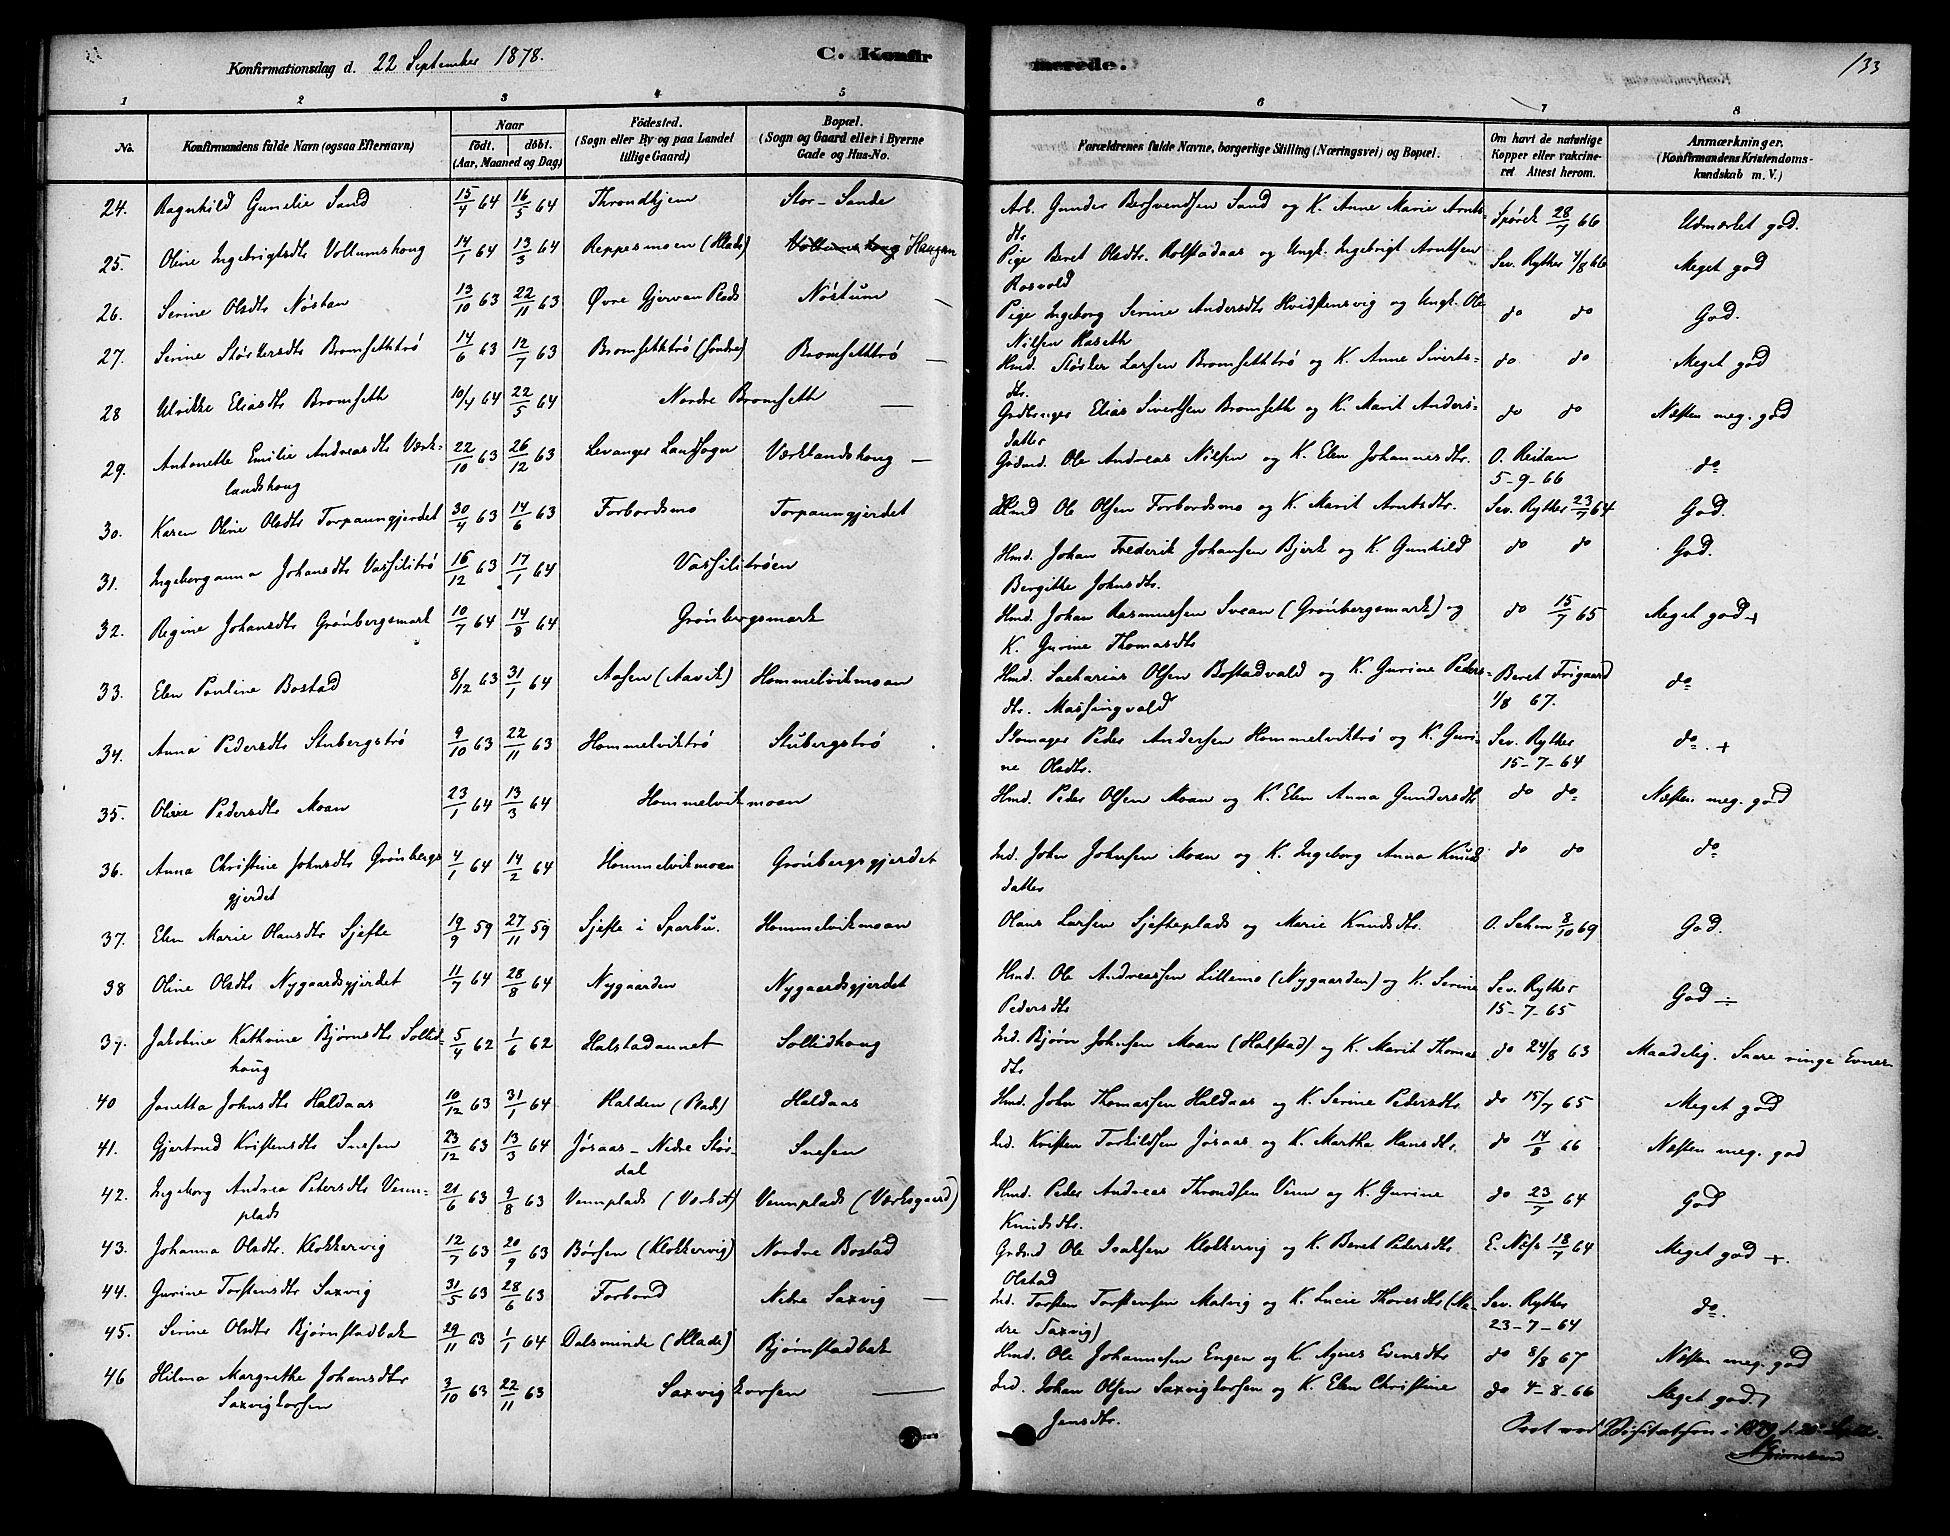 Konfirmationsdag d. 22 September 1878. C. Konfir merede. 133
1 2 3 4 5 6 7 8
No. Konfirmandens fulde Navn (ogsaa Efternavn) Naar født. døbt. (Aar, Maaned og Dag) Fødested. (Sogn eller By og paa Landet tillige Gaard) Bopæl. (Sogn og Gaard eller i Byerne Gade og Hus-No. Forældrenes fulde Navne, borgerlige Stilling (Næringsvei) og Bopæl. Om havt de naturlige Kopper eller vakcineret Attest herom. Anmærkninger. (Konfirmandens Kristendomskundskab m. V.)
24. Ragnhild Gunelie Sand 15/4 64 16/5 64 Throndhjem Stor-Sande Arb. Gunder Bersvendsen Sand og K. Anne Marie Arnts- Spörck 28/7 66 Udmærket god.
dtr.
25. Oline Ingebrigtsdtr Vollumshoug 14/1 64 13/3 64 Reppesmoen (Hlade) Vollumshoug Haugan Pige Beret Olsdtr. Rolstadaas og Ungk. Ingebrigt Arntsen Sev. Ryther 4/8 66 Meget god
Rosvold
26. Serine Olsdtr Nöstan 13/10 63 22/11 63 Øvre Gjervan Plads Nöstum — Pige Ingeborg Serine Andersdtr Hvidstensvig og Ungk. Ole do do God.
Nilsen Haseth
27. Serine Störkersdtr Bromsethtrö 14/6 63 12/7 63 Bromsethtrö (söndre) Bromsethtrö — Hmd. Störker Larsen Bromsethtrö og K. Anne Siverts- do do Meget god
dtr.
28 Ulrikke Eliasdtr Bromseth 10/4 64 22/5 64 Nordre Bromseth — Grdbruger Elias Sivertsen Bromseth og K. Marit Anders- do do Næsten meg. god
datter
29. Antonette Emilie Andreasdtr Værk- 22/10 63 26/12 63 Levanger Landsogn Værklandshoug — Gaardmd. Ole Andreas Nilsen og K. Elen Johannesdtr. O. Reitan do
landshoug 5-9-66
30. Karen Oline Olsdtr Torpaungjerdet 30/4 63 14/6 63 Forbordsmo Torpaungjerdet Hmd Ole Olsen Forbordsmo og K. Marit Arntsdtr. Sev. Ryther 23/7 64 God.
31. Ingeborganna Johansdtr Vasselitrö 16/12 63 17/1 64 Vasselitröen Hmd. Johan Frederik Johansen Bjerk og K. Gunhild do do God.
Bergitte Johnsdtr.
32. Regine Johansdtr Grönbergsmark 10/7 64 14/8 64 Grönbergsmark Hmd. Johan Rasmussen Svean (Grönbergsmark) og do 15/7 65 Meget god +
K. Gurine Thomasdtr
33. Elen Pauline Bostad 8/12 63 31/1 64 Aasen (Aavik) Hommelvikmoan Hmd. Sacharias Olsen Bostadvald og K. Gurine Peders- Beret Frigaard do
dtr. Massingvald 1/8 67.
34. Anna Pedersdtr Stubergströ 9/10 63 22/11 63 Hommelviktrö Stubergströ Skomager Peder Andersen Hommelviktrö og K. Guri- Sev. Ryther do. +
ne Olsdtr. 15-7-64
35. Oline Pedersdtr Moan 23/1 64 13/3 64 Hommelvikmoan Hmd. Peder Olsen Moan og K. Elen Anna Gundersdtr do do Næsten meg. god
36. Anna Christine Johnsdtr Grönbergs 4/1 64 14/2 64 Hommelvikmoan Grönbergsgjerdet Ind. John Johnsen Moan og K. Ingeborg Anna Knuds do do do
gjerdet datter
37. Elen Marie Olausdtr Sjefte 19/9 59 27/11 59 Sjefte i Sparbu. Hommelvikmoan Olaus Larsen Sjefteplads og Marie Knudsdtr. O. Sehm 8/10 69 God.
38 Oline Olsdtr Nygaardsgjerdet 11/7 64 28/8 64 Nygaarden Nygaardsgjerdet Hmd. Ole Andreassen Lillemo (Nygaarden) og K. Serine Sev. Ryther God ÷
Pedersdtr 15-7-65
39. Jakobine Kathrine Björnsdtr Sollid- 5/4 62 1/6 62 Halstadaunet Sollidhoug Ind. Björn Johnsen Moan (Halstad) og K. Marit Thomas do 24/8 63 Maadelig. Saare ringe Evner
houg dtr
40 Jonetta Johnsdtr Haldaas 10/12 63 31/1 64 Halden (Plads) Haldaas Hmd. John Thomassen Haldaas og K. Serine Pedersdtr. do 15/7 65 Meget god
41. Gjertrud Kristensdtr Snesen 23/12 63 13/3 64 Jøsaas - Nedre Stör- Snesen Ind. Kristen Torkildsen Jøsaas og K. Martha Hansdtr. do 14/8 66 Næsten meg. god
dal
42. Ingeborg Andrea Petersdtr Venn- 21/6 63 9/8 63 Vennplads (Værket) Vennplads (Værksgaard) Hmd. Peder Andreas Throndsen Venn og K. Gurine do 23/7 64 God
plads Knudsdtr.
43. Johanna Olsdtr. Klokkervig 12/7 63 20/9 63 Börsen (Klokkervig) Nordre Bostad Grdmd Ole Isaksen Klokkervig og K. Beret Pedersdtr E. Næss 18/7 64 Meget god +.
Olstad
44. Gurine Torstensdtr Saxvig 31/5 63 28/6 63 Forbord Nedre Saxvig — Ind. Torsten Torstensen Malvig og K. Lucie Thoresdtr (Ne- Sev. Ryther do.
dre Saxvig) 23-7-64
45. Serine Olsdtr Bjørnstadbak 29/11 63 1/1 64 Dalsminde (Hlade) Bjørnstadbak Hmd. Ole Johannesen Engen og K. Agnes Evensdtr do 8/8 67 Næsten meg. god
46 Hilma Margrethe Johansdtr 3/10 63 22/11 63 Saxvigkorsen — Ind. Johan Olsen Saxvigkorsen og K. Elen Christine do 4-8-66 Meget god
Saxvigkorsen Jensdtr.
ved Visitatsen i 1879